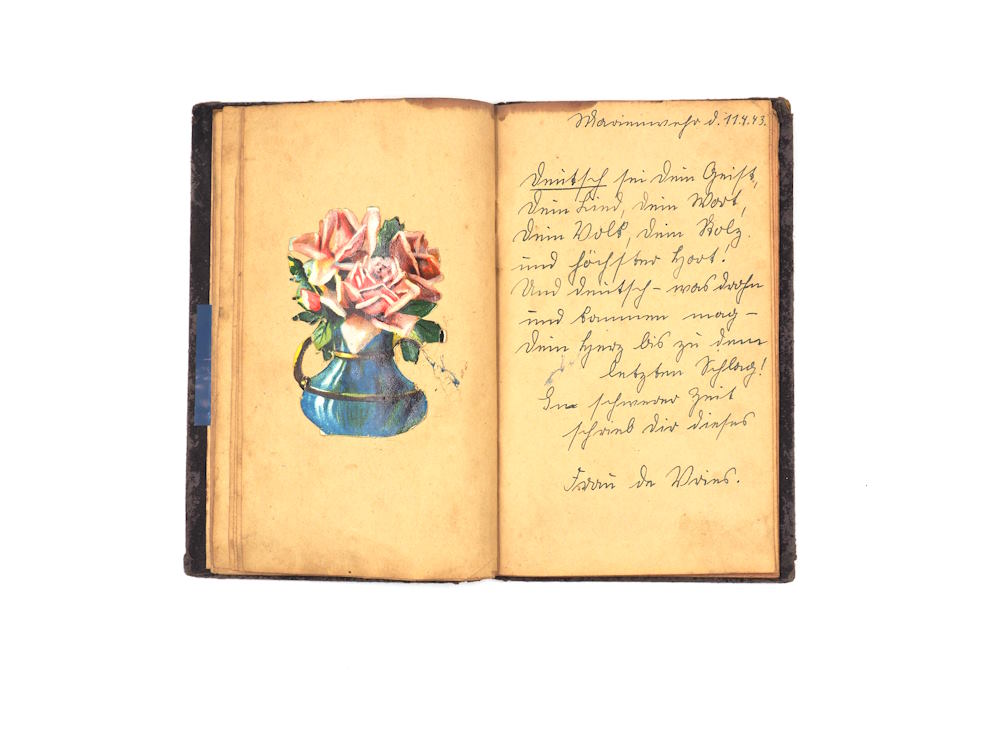 Marienwehr d. 11.4.43.
Deutsch sei dein Geist,
dein Lied, dein Wort,
dein Volk, dein Stolz
und höchster Hort!
Und deutsch – was drohn
und kommen mag –
dein Herz bis zu dem
letzten Schlag!
In schwerer Zeit
schrieb dir dieses
Frau de Vries.